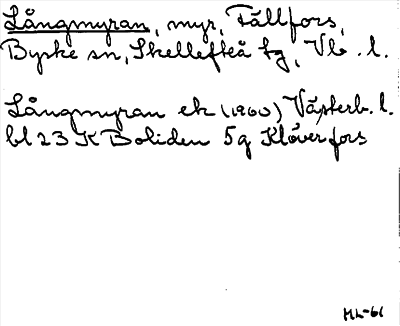 Långmyran, myr, Fällfors,
Byske sn, Skellefteå tg, Vb. l.
Långmyran ek (1960) Västerb. l.
bl 23 K Boliden 5g Klöverfors
ML-61